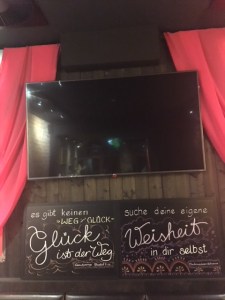 es gibt keinen
WEG zum GLÜCK-
Glück
ist der Weg
Suche deine eigene
Weisheit
in dir selbst